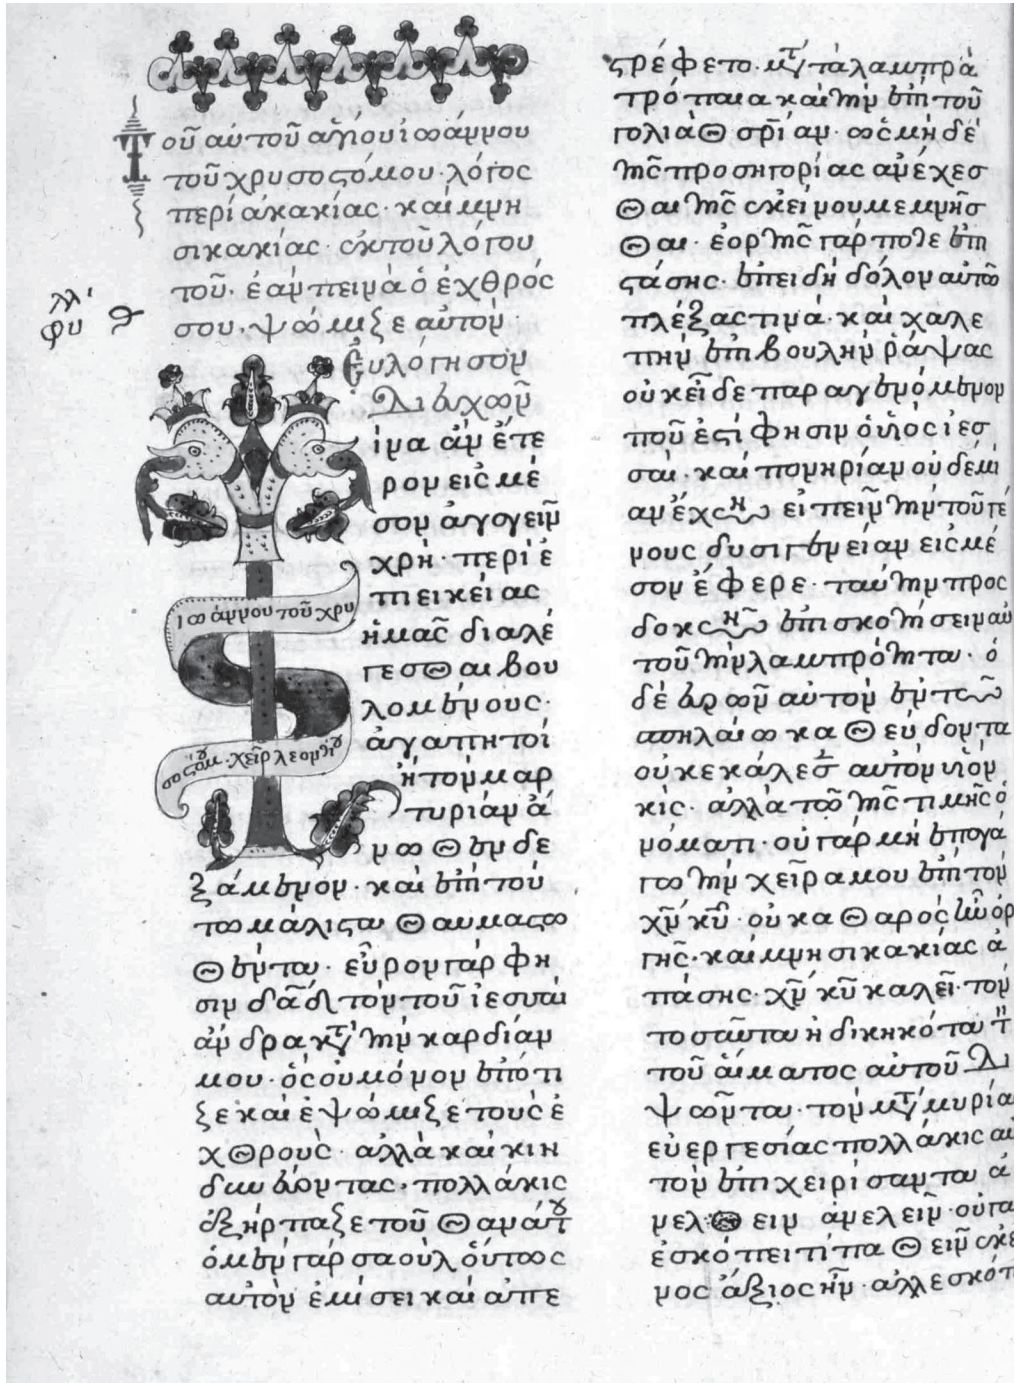 Τοῦ αὐτοῦ ἁγίου ἰωάννου
τοῦ χρυσοστόμου· λόγος
περὶ ἀκακίας· καὶ μνη
σικακίας· ἐκ τοῦ λόγου
τοῦ· ἐὰν πεινᾶ ὁ ἐχθρός
σου· ψώμιζε αὐτόν·
Εὐλόγησον
ἵνα ἀν ἕτε
ρον εἰς μέ
σον ἀγογεῖν
χρή· περὶ ἐ
πιεικείας
ἡμᾶς διαλέ
γεσθαι βου
λομένους·
ἀγαπητοί
ἢ τὸν μαρ
τυρίαν ἄ
νωθεν δε
ξάμενον· καὶ ἐπὶ τού
τω μάλιστα θαυμασ
θέντα· εὗρον γάρ φη
σιν δαδ τὸν τοῦ ἰεσσαὶ
ἄνδρα κτ τὴν καρδίαν
μου· ὃς οὐ μόνον ἐπότι
ζε καὶ ἐψώμιζε τοὺς ἐ
χθρούς· ἀλλὰ καὶ κιν
δυνεύοντας· πολλάκις
ἐξήρπαξε τοῦ θανάτου
ὁ μὲν γὰρ σαοὺλ οὕτως
αὐτὸν ἐμίσει καὶ ἀπε
ἰωάννου τοῦ χρυ
σοστόμου· χεὶρ
στρέφετο· μτ τὰ λαμπρὰ
τρόπαια καὶ τὴν ἐπὶ τοῦ
γολιὰθ σρίαν· ὡς μηδέ
τῆς προσηγορίας ἀνέχεσ
θαι τῆς ἐκείνου μεμνῆσ
θαι· ἑορτῆς γάρ ποτε ἐπι
στάσης· ἐπειδὴ δόλον αὐτῶ
πλέξας τινά· καὶ χαλε
πὴν ἐπιβουλὴν ῥάψας
οὐκ εἶδε παραγενόμενον
ποῦ ἐστί φησιν ὁ υἱὸς ἰεσ
σαί· καὶ πονηρίαν οὐδέμι
εἰπεῖν τὴν τοῦ γέ
νους δυσιγένειαν εἰς μέ
σον ἔφερε· ταύτην προσ
ἐπισκοτήσειν αὐ
τοῦ τὴν λαμπρότητα· ὁ
δὲ δαυὶδ εὑρὼν αὐτὸν ἐν τῷ
σπηλαίω καθεύδοντα
οὐκ ἐκάλεσε αὐτὸν υἱὸν
κίς· ἀλλὰ τῶ τῆς τιμῆς ὀ
νόματι· οὐ γὰρ μὴ ἐπαγά
γω τὴν χεῖρα μου ἐπὶ τὸν
χν κυ· οὐ καθαρὸς ἦν ὀρ
γῆς· καὶ μνησικακίας ἁ
πάσης· χν κυ καλεῖ· τὸν
τοσαῦτα ἠδικηκότα τ
τοῦ αἵματος αὐτοῦ δι
ψῶντα· τὸν μτ μυρία
εὐεργεσίας πολλάκις αὐ
τὸν ἐπιχειρίσαντα ἀ
νελεῖν· οὐ γὰ
ἐσκόπει τί παθεῖν ἐκε
νος ἄξιος ἦν· ἀλλ ἐσκόπ